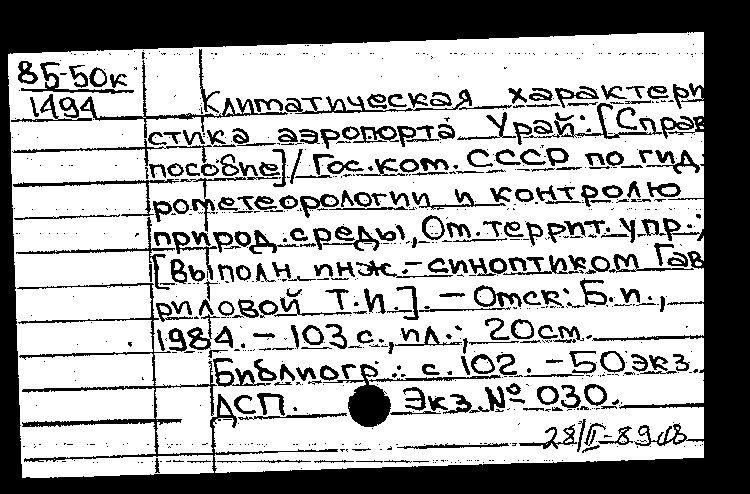 85-50к
1494
Климатическая характери
стика аэропорта Урай: [Справ
пособие] / Гос. ком. СССР по гид-
рометеорологии и контролю
природ. среды, Ом. террит. упр.;
[Выполн. инж.-синоптиком Гав
риловой Т.И.]. - Омск: Б.и.,
1984. - 103 с., ил.; 20см.
Библиогр.: с. 102. - 50 экз.
ДСП. Экз. № 030.
28/II-89